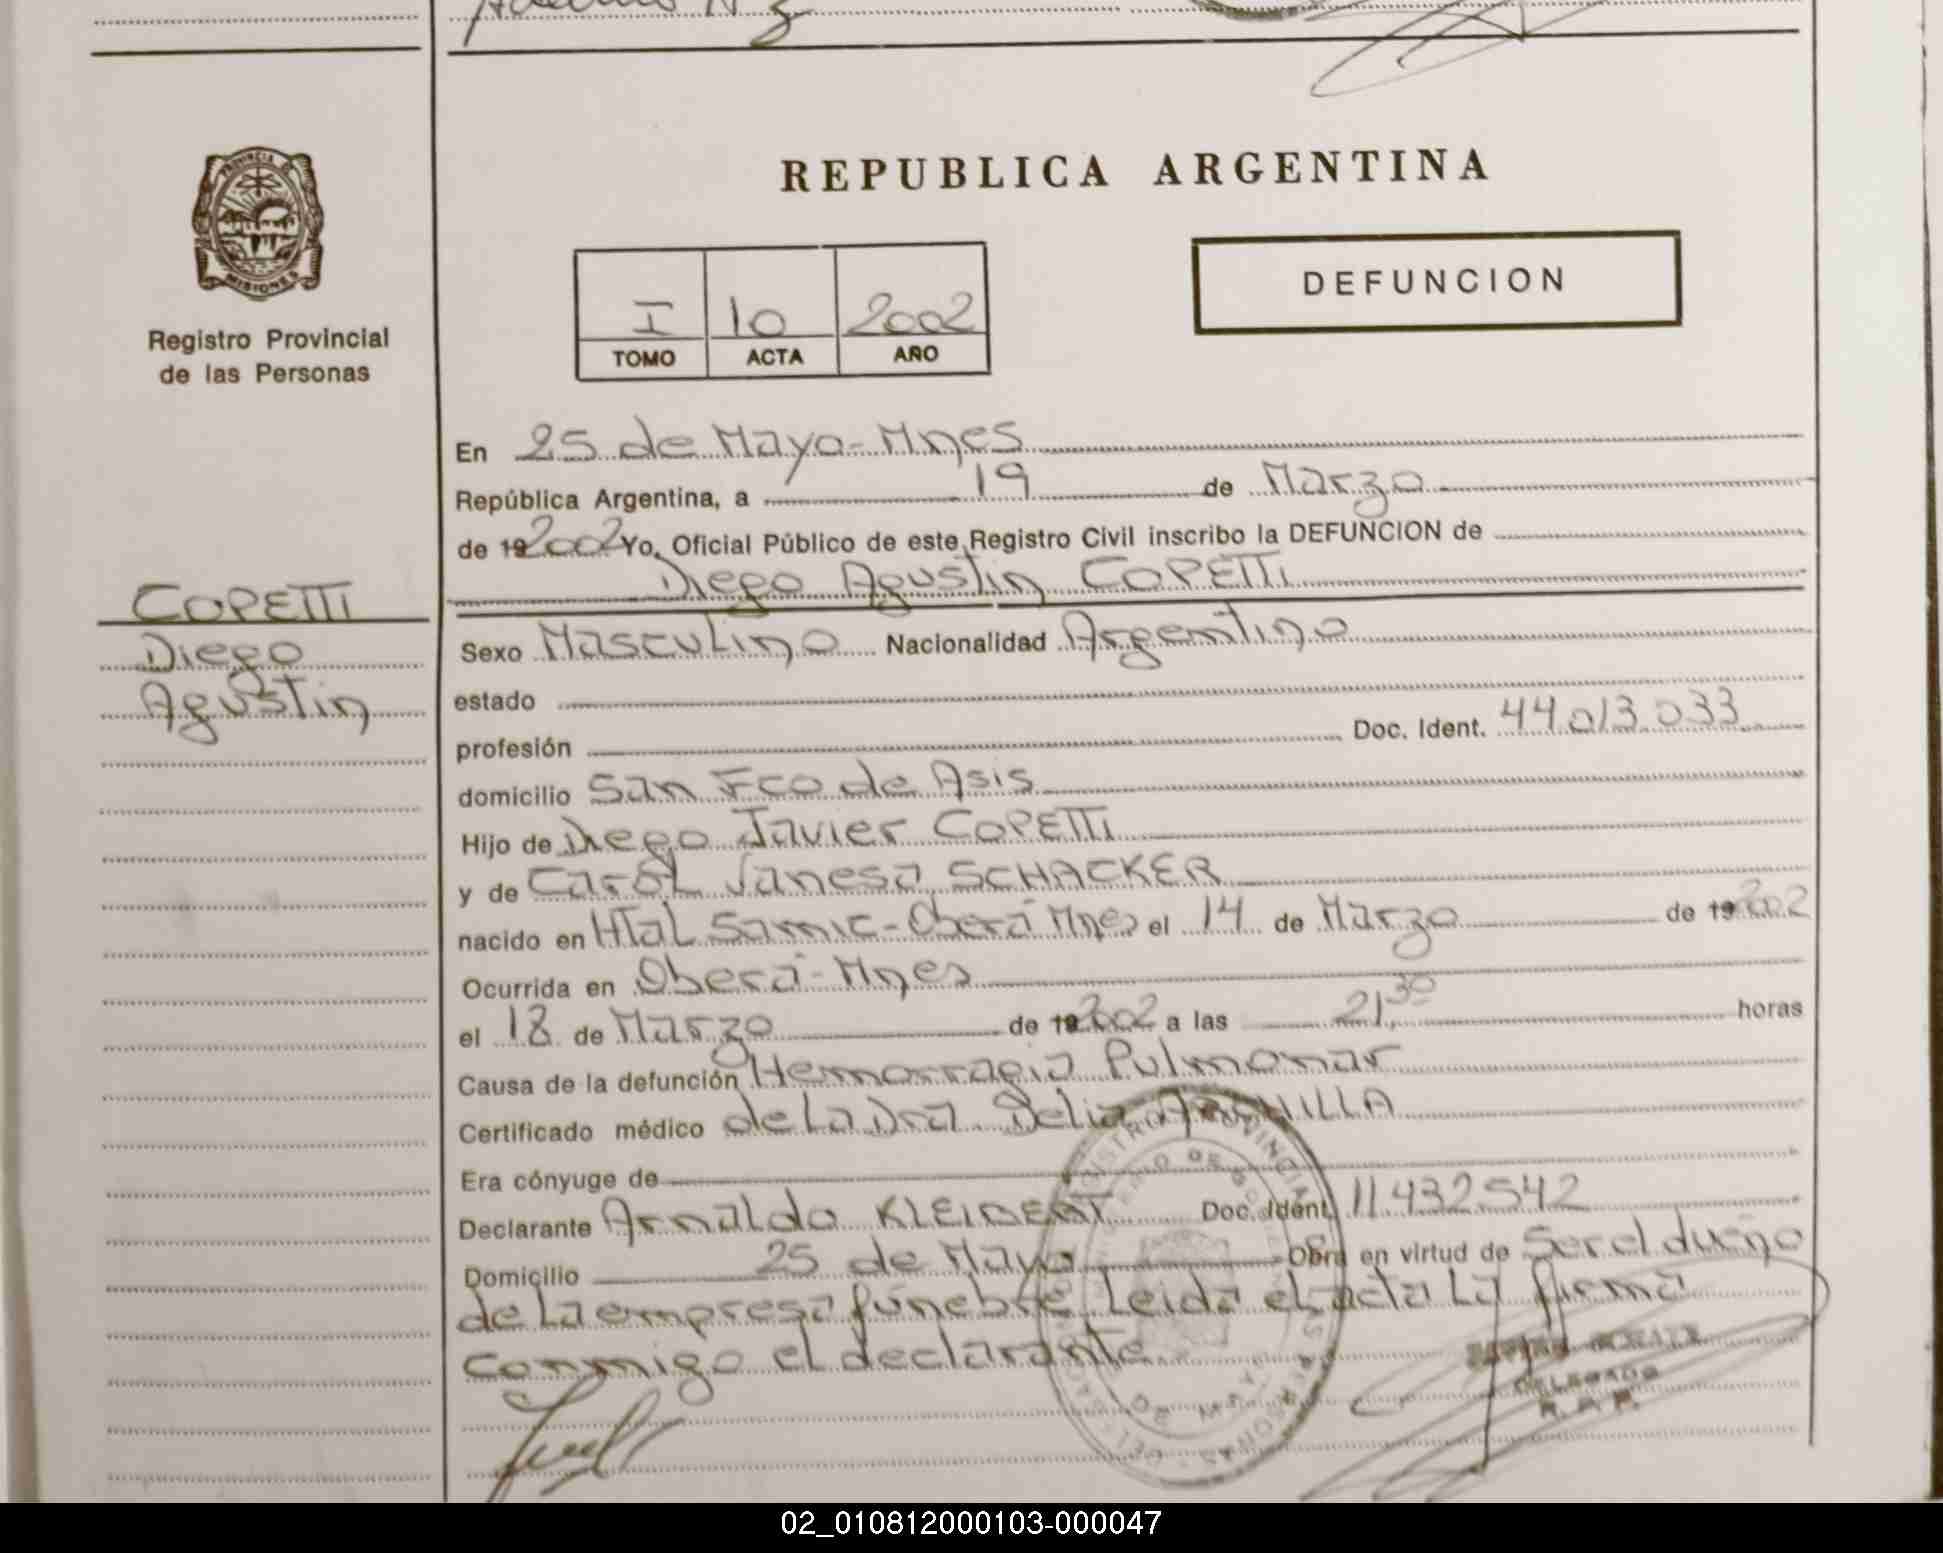 REPUBLICA ARGENTINA
DEFUNCION
PROVINCIA DE
MISIONES
Registro Provincial
de las Personas
I 10 2002
TOMO ACTA AÑO
COPETTI
Diego
Agustin
En 25 de Mayo-Mnes
República Argentina, a 19 de Marzo
de 192002 Yo, Oficial Público de este Registro Civil inscribo la DEFUNCION de
Diego Agustin COPETTI
Sexo Masculino Nacionalidad Argentino
estado
profesión Doc. Ident. 44.013.033
domicilio San Fco de Asis
Hijo de Diego Javier COPETTI
y de Carol Vanesa SCHACKER
nacido en Htal Samic-Oberá Mnes el 14 de Marzo de 192002
Ocurrida en Oberá-Mnes
el 18 de Marzo de 192002 a las 21,30 horas
Causa de la defunción Hemorragia Pulmonar
Certificado médico de La Dra. Delia
Era cónyuge de
Declarante Arnaldo KLEIBERT Doc. Ident. 11.432.542
Domicilio 25 de Mayo Obra en virtud de Ser el dueño
de La empresa fúnebre Leida el acta La firma
conmigo el declarante
DELEGADO
R. P. P.
02_010812000103-000047